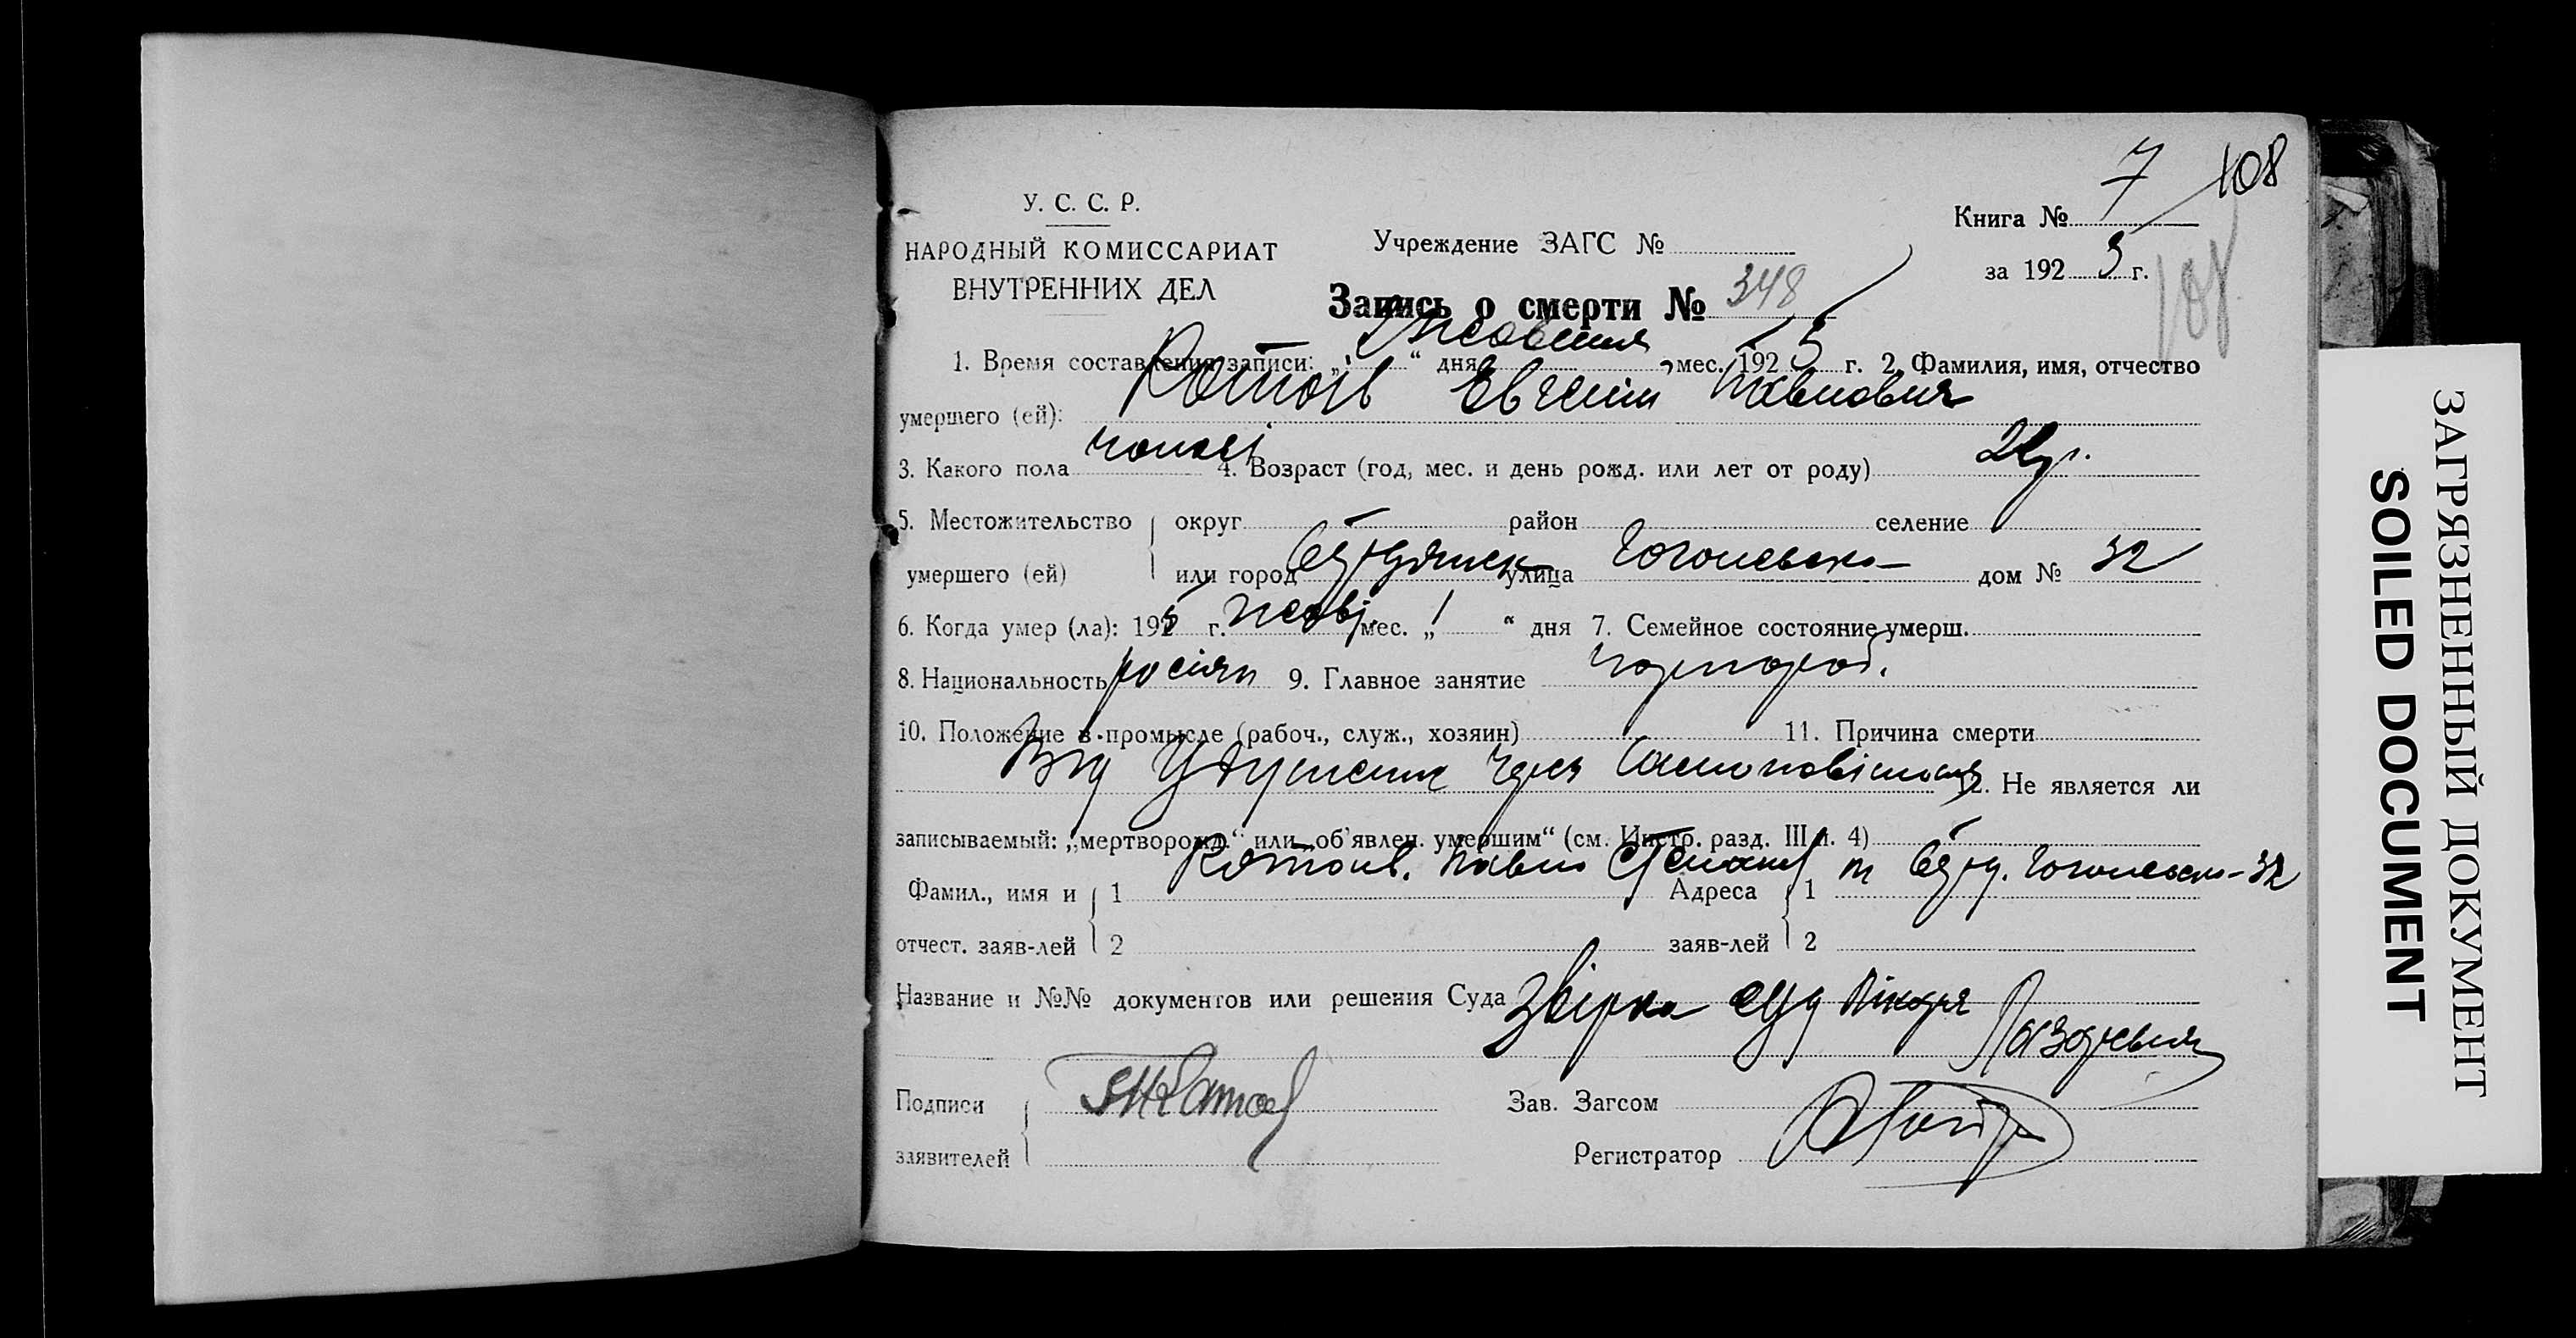 7 108
У. С. С. Р.
Книга №
НАРОДНЫЙ КОМИССАРИАТ
Учреждение ЗАГС №
за 192 5 г.
108
ВНУТРЕННИХ ДЕЛ
Запись о смерти № 348
1. Время составления записи: „ “ дня мес. 192 5 г. 2. Фамилия, имя, отчество
умершего (ей): Евгеній Павлович
3. Какого пола чолов 4. Возраст (год, мес. и день рожд. или лет от роду)
5. Местожительство округ — район селение
умершего (ей) или город улица Гоголевська дом № 32
6. Когда умер (ла): 1925 г. Жовт. мес. „ 1 “ дня 7. Семейное состояние умерш.
8. Национальность росіян 9. Главное занятие чорнороб.
10. Положение в промысле (рабоч., служ., хозяин) 11. Причина смерти
Від удушення через 12. Не является ли
записываемый: „мертворожд.“ или „об’явлен. умершим“ (см. Инстр. разд. III п. 4)
Фамил., имя и 1 Павло Адреса 1 Гоголевська-32
отчест. заяв-лей 2 заяв-лей 2
Название и №№ документов или решения Суда суд лікаря
Подписи
Зав. Загсом
заявителей
Регистратор
ЗАГРЯЗНЕННЫЙ ДОКУМЕНТ
SOILED DOCUMENT